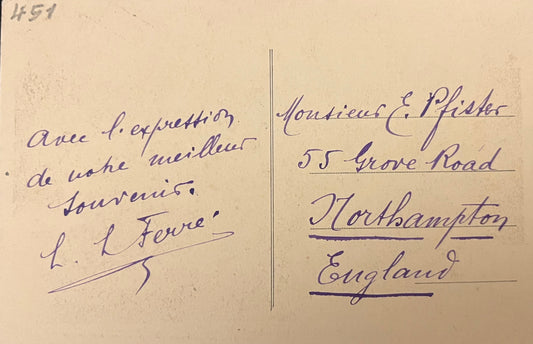 451
Avec l'expression
de notre meilleur
souvenir.
L. L Ferré.
Monsieur E. Pfister
55 Grove Road
Northampton
England